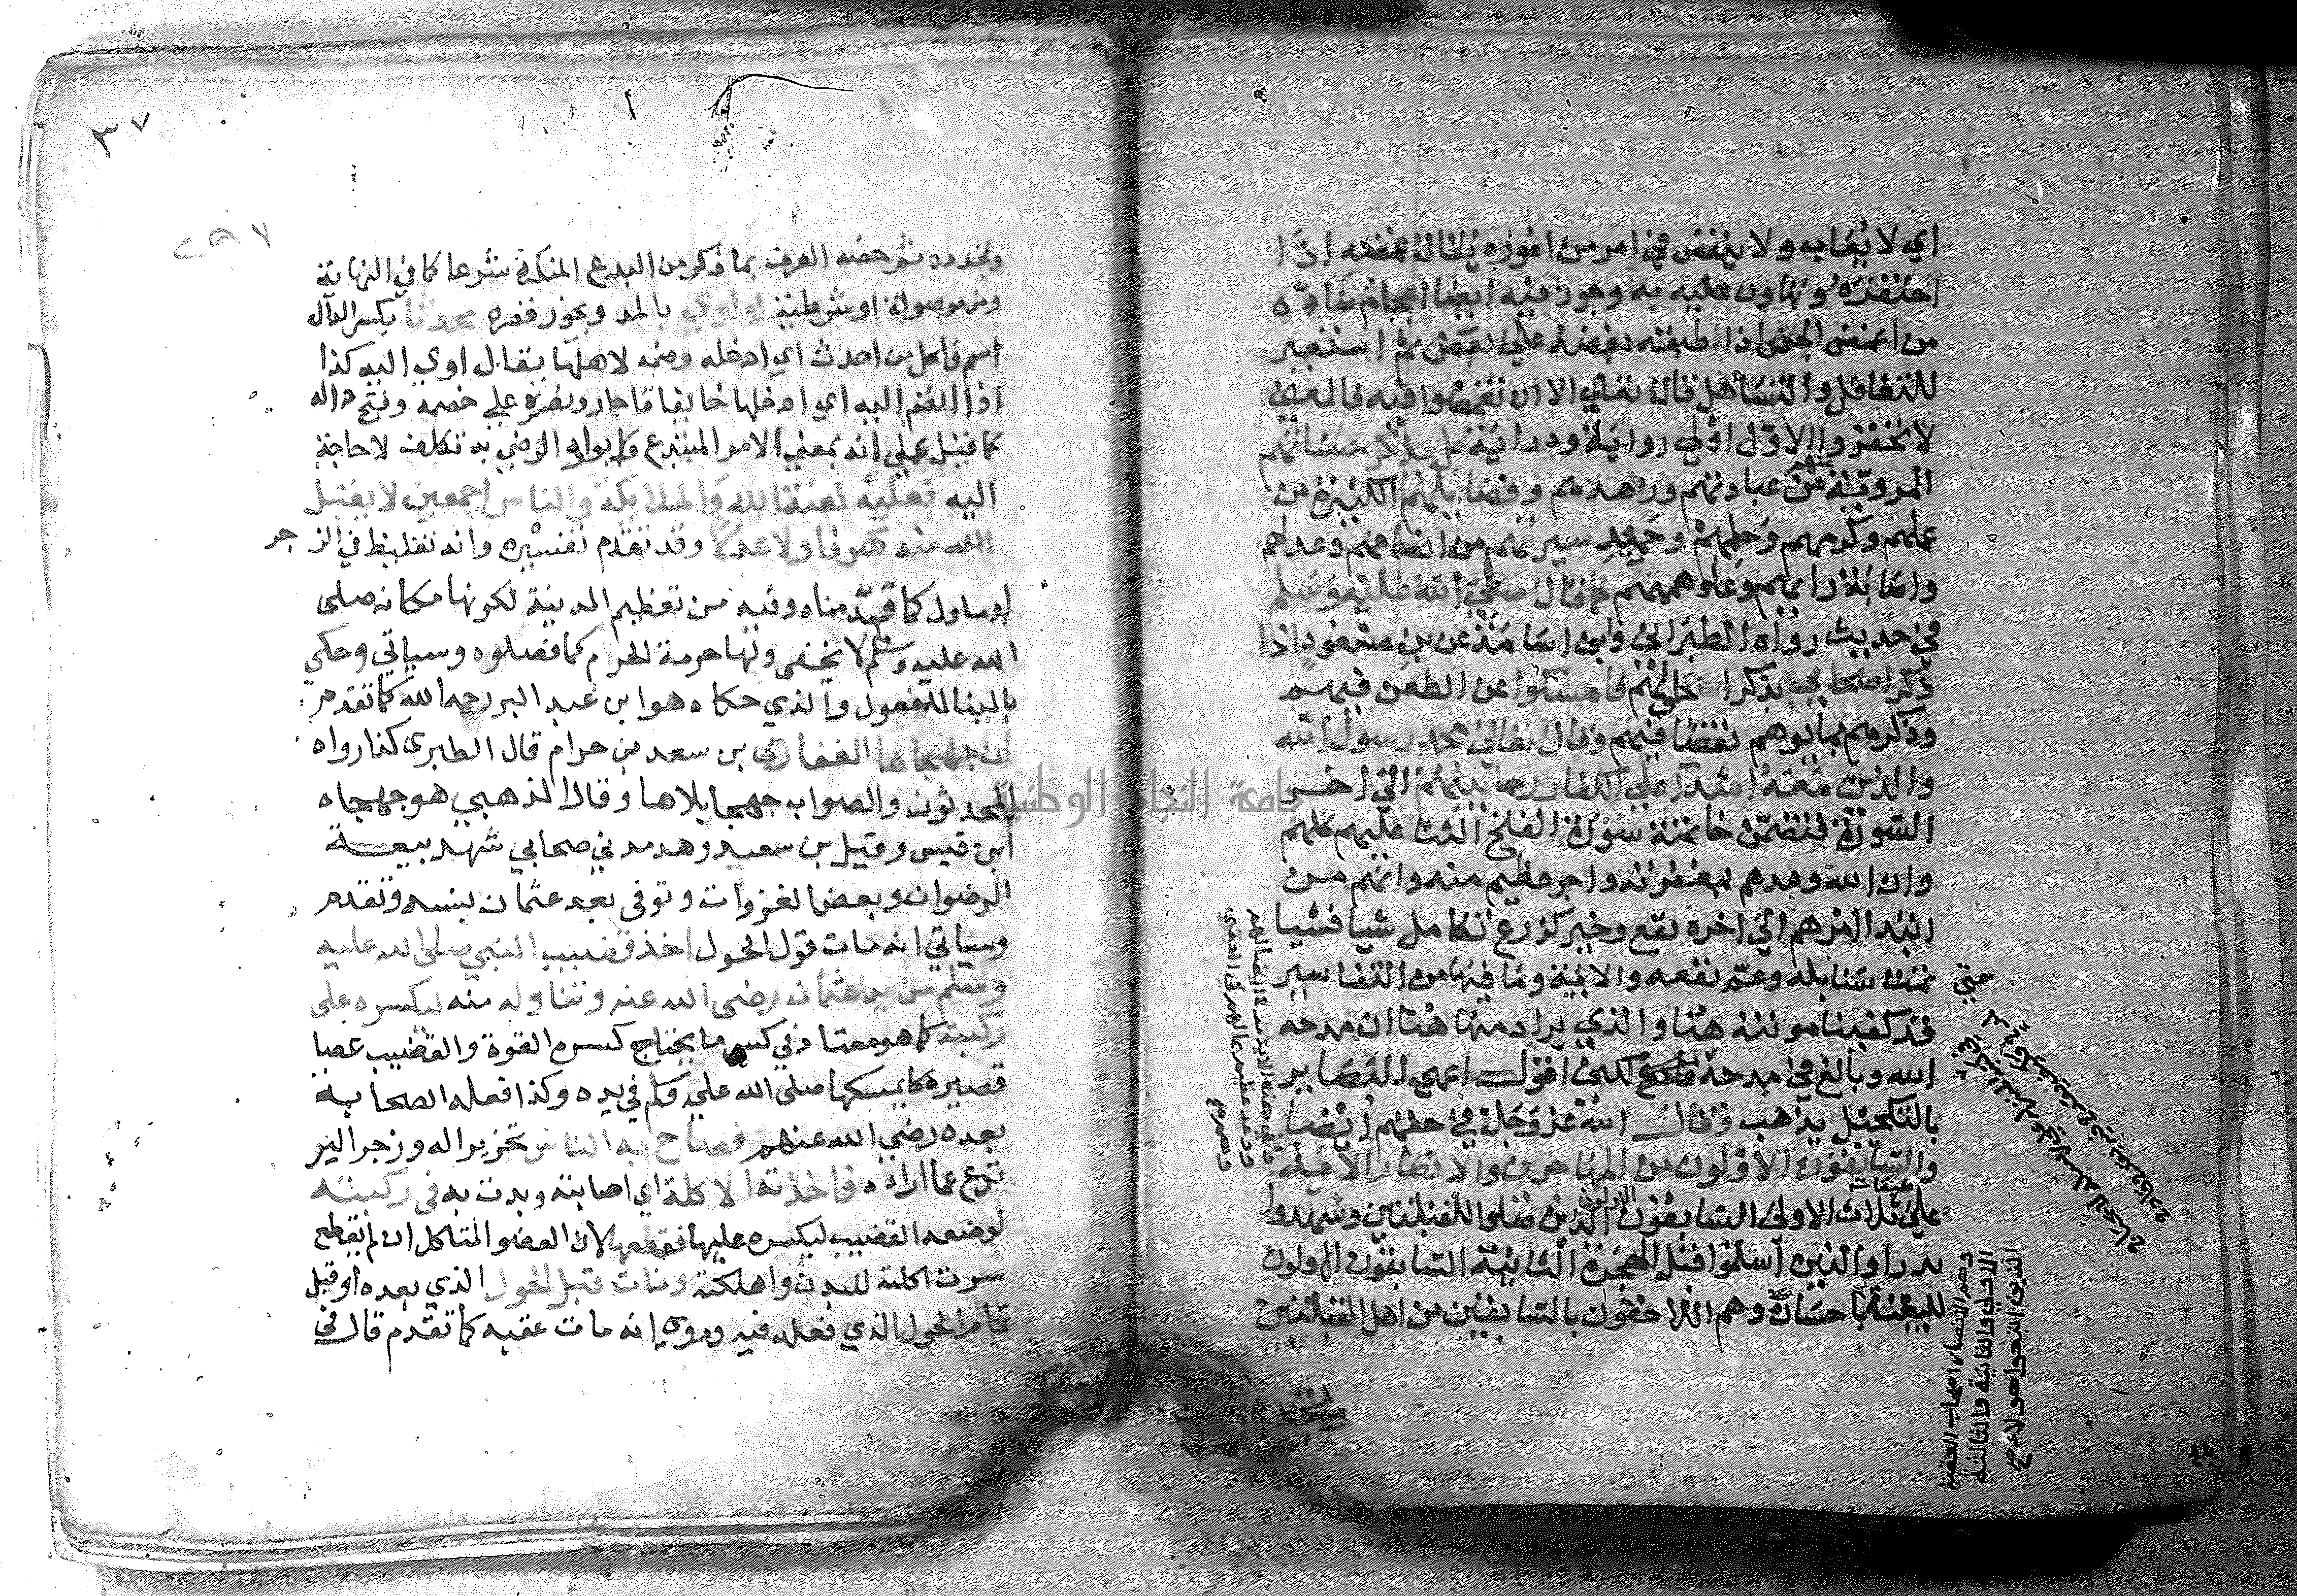 اي لا يعاب ولا ينقص في امر من اموره يقال غمضه اذا
احتقره وتهاون عليه به وجوز فيه ايضا اعجام ضاده
من اغمض الجفن اذا طبقه بعضه على بعض ثم استعير
للتغافل والتساهل قال تعالى الا ان تغمضوا فيه فالمعنى
لا تحقروا والاول اولى رواية ودراية بل يذكر حسناتهم
المروية عنهم من عبادتهم وزهدهم وفضايلهم الكثيرة من
علمهم وكرمهم وحلمهم وحميد سيرتهم من انصافهم وعدلهم
واصابة رايهم وعلو هممهم كما قال صلى الله عليه وسلم
في حديث رواه الطبراني وابن اسامة عن بن مسعود اذا
ذكر اصحابي بذكر فامسكوا عن الطعن فيهم
وذكرهم بما يوهم نقصا فيهم وقال تعالى محمد رسول الله
والذين معه اشدا على الكفار رحما بينهم الى اخر
السورة فتضمن خاتمة سورة الفتح الثنا عليهم كلهم
وان الله وعدهم بمغفرته واجر عظيم منه وانهم من
ابتدا امرهم الى اخره نفع وخير كزرع تكامل شيا فشيا
حتى نمت سنابله وعم نفعه والاية وما فيها من التفاسير
قد كفينا مونته هنا والذي يراد منها هنا ان مدحه
الله وبالغ في مدحه لكني اقول اعمى البصاير
بالتكحيل يذهب وقال الله عز وجل في حقهم ايضا
والسابقون الاولون من المهاجرين والانصار الاية
على ثلاث طبقات الاولى السابقون الاولون الذين صلوا للقبلتين وشهدوا
بدرا والذين اسلموا قبل الهجرة الثانية السابقون الاولون
للبيعة باحسان وهم اللاحقون بالسابقين من اهل القبلتين
وتجدده
٣٧
وتجدده ثم خصه العرف بما ذكر من البدع المنكرة شرعا كما في النهاية
ومن موصولة او شرطية او اوي بالمد ويجوز قصره محدثا بكسر الدال
اسم فاعل من احدث اي ادخله وضمه لاهلها يقال اوي اليه كذا
اذا انضم اليه اي ادخلها خايفا فاجاره ونصره على خصمه وفتح داله
كما قيل على انه بمعنى الامر المبتدع وايواه الرضي به تكلف لا حاجة
اليه فعليه لعنة الله والملايكة والناس اجمعين لا يقبل
الله منه صرفا ولا عدلا وقد تقدم تفسيره وانه تغليظ في الزجر
او ماول كما قدمناه وفيه من تعظيم المدينة لكونها مكانه صلى
الله عليه وسلم لا يخفى ولها حرمة الحرم كما فصلوه وسياتي وحكي
بالبنا للمفعول والذي حكاه هو ابن عبد البر رحمه الله كما تقدم
ان جهجاها الغفاري بن سعد بن حرام قال الطبرى كذا رواه
المحدثون والصواب جهجا بلا ها وقال الذهبي هو جهجاه
ابن قيس وقيل بن سعيد وهد مدني صحابي شهد بيعة
الرضوان وبعض الغزوات وتوفى بعد عثمان بسنه وتقدم
وسياتي انه مات قول الحول اخذ قضيب النبي صلى الله عليه
وسلم من يد عثمان رضى الله عنه وتناوله منه ليكسره على
ركبته كما هو معتاد في كسر ما يحتاج كسره القوة والقضيب عصا
قصيرة كان يمسكها صلى الله عليه وسلم في يده وكذا فعله الصحابة
بعده رضي الله عنهم فصاح به الناس تحزيرا له وزجرا لينزع
عما اراده فاخذته الاكلة اي اصابته وبدت به في ركبته
لوضعه القضيب ليكسره عليها فقطعها لان العضو المتاكل ان لم يقطع
سرت اكلته للبدن واهلكته ومات قبل الحول الذي بعده او قبل
تمام الحول الذي فعله فيه وروى انه مات عقبه كما تقدم قال في
جامعة النجاح الوطنية